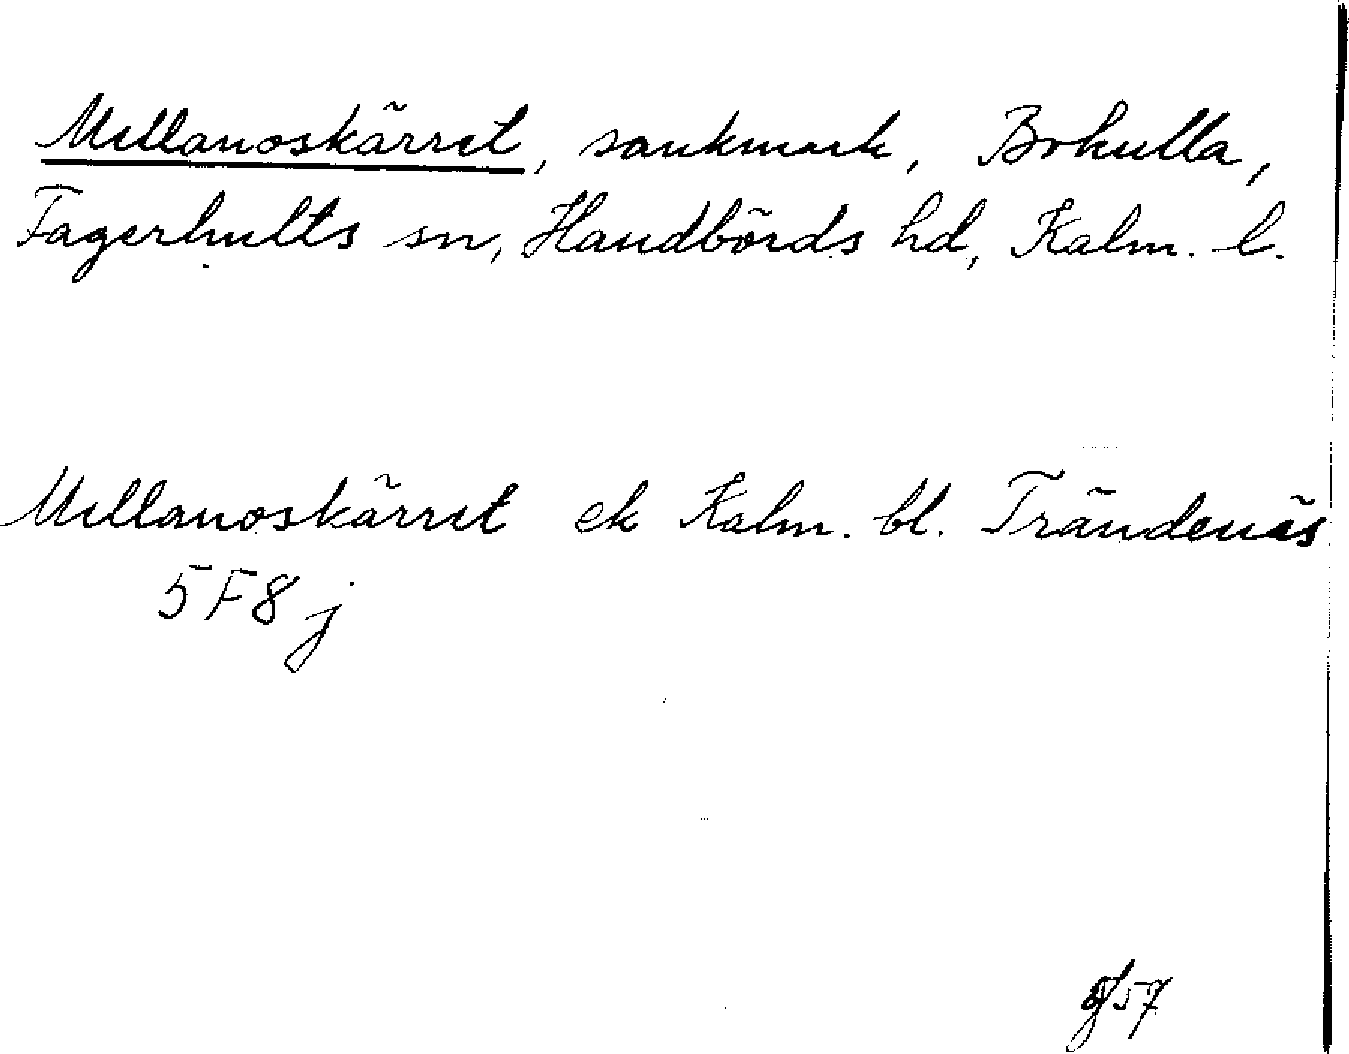 Mellanoskärret, sankmark, Bohulla,
Fagerhults sn, Handbörds hd, Kalm. l.
Mellanoskärret ek Kalm. bl. Trändenäs
5F8j